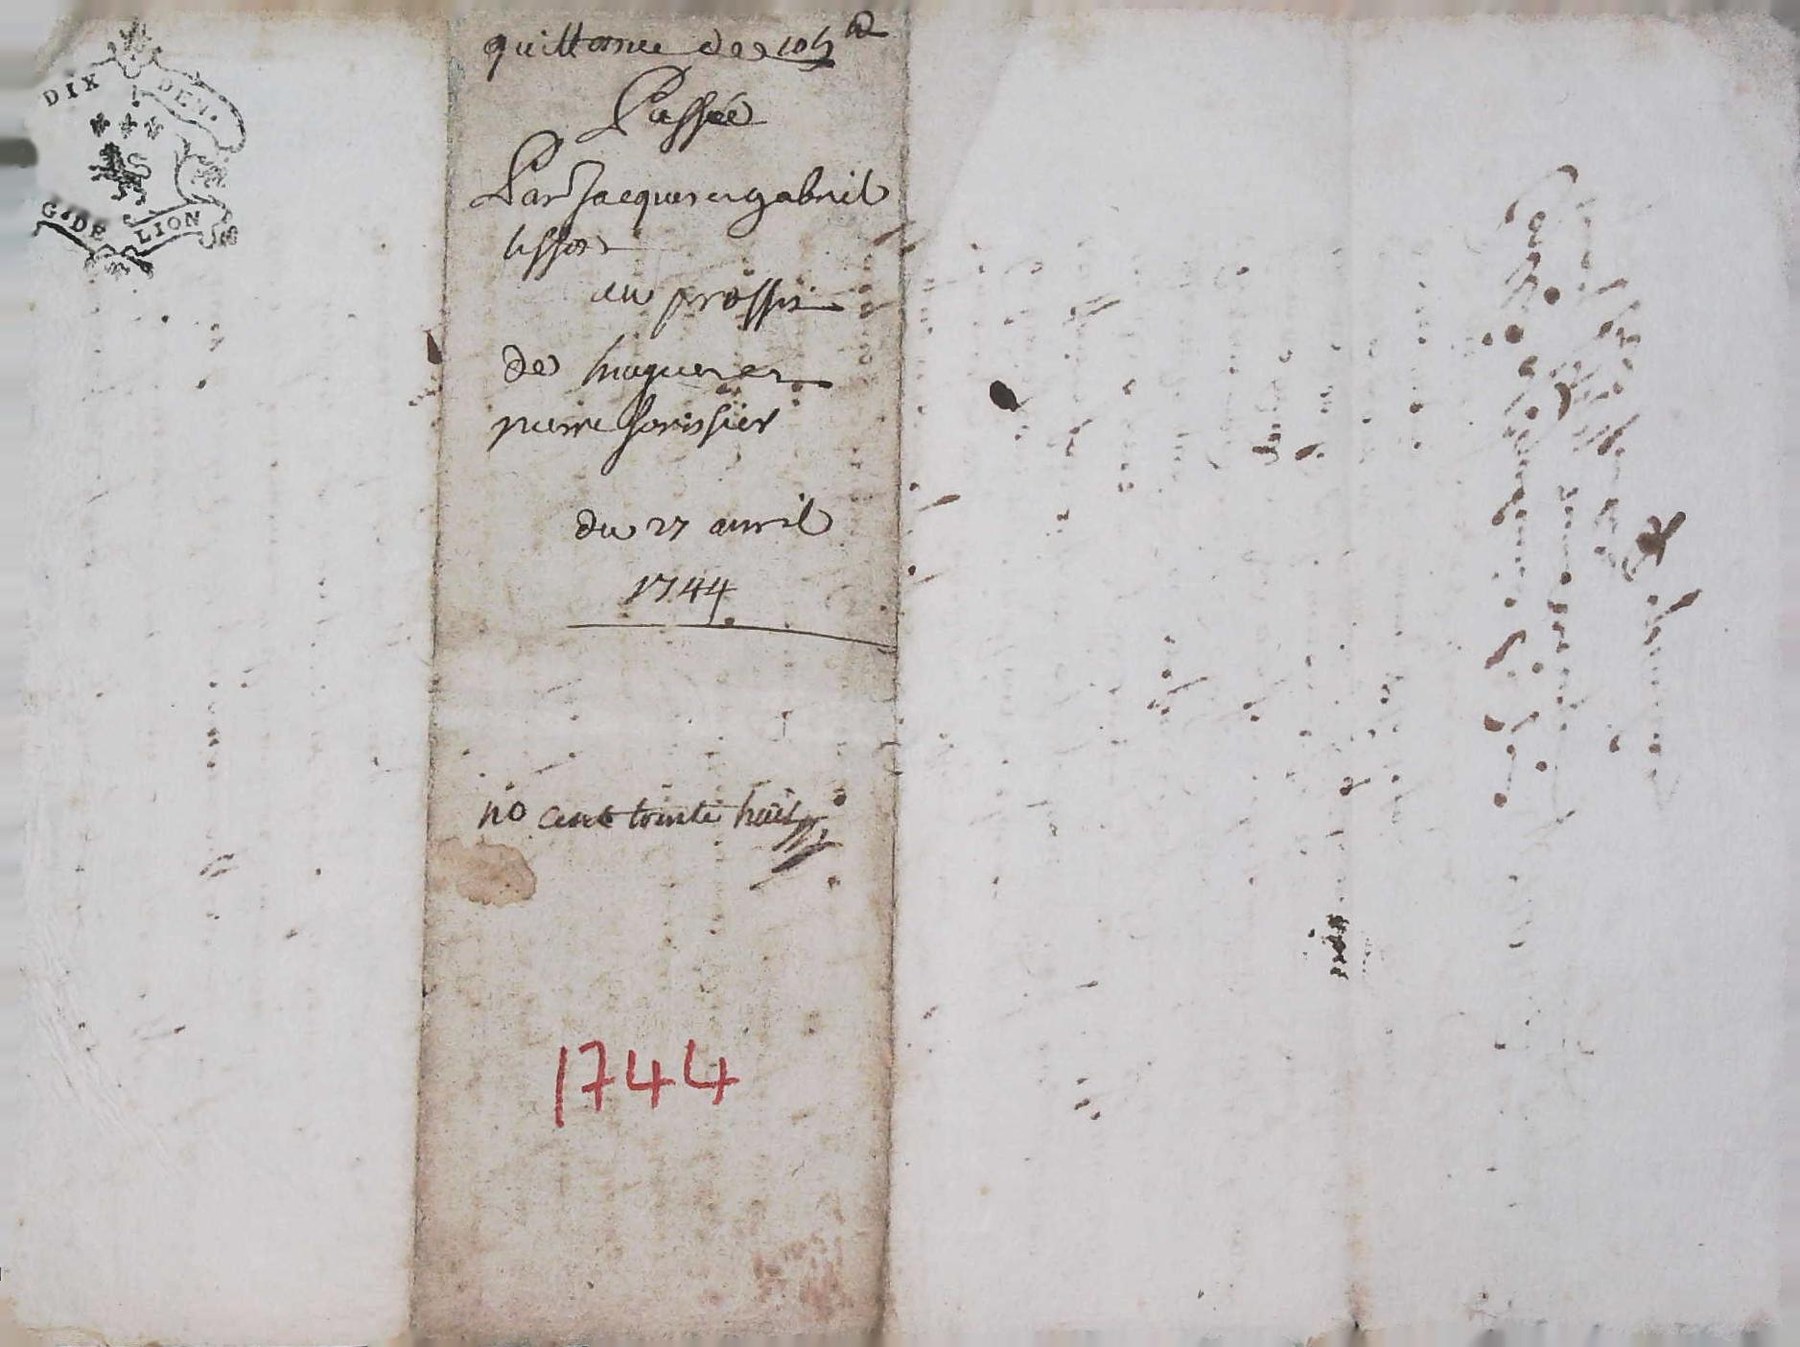 DIX DEN.
G. DE LION
quittance de 104
Passée
Par Jacques et gabriel
au proffit
de huques et
pierre
du 27 avril
1744
no cent trante huit
1744